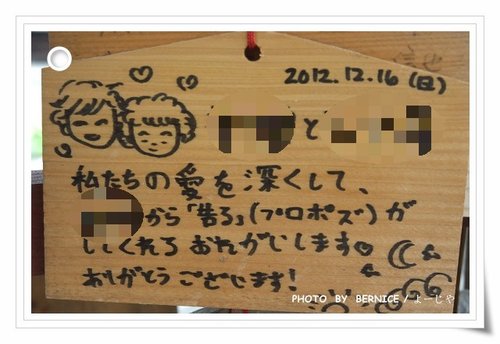 2012.12.16(日)
と
私たちの愛を深くして、
から「告る」(プロポズ)が
しくれる おねがいします
ありがとう ございます!
PHOTO BY BERNICE / よーじや